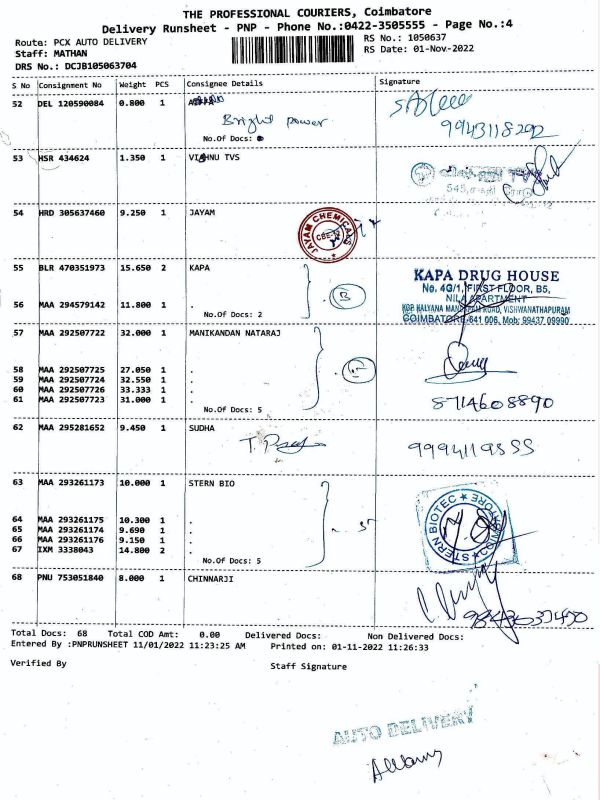 THE PROFESSIONAL COURIERS, Coimbatore
Delivery Runsheet - PNP - Phone No.:0422-3505555 - Page No.:4
Route: PCX AUTO DELIVERY
RS No.: 1050637
Staff: MATHAN
RS Date: 01-Nov-2022
DRS No.: DCJB105063704
S No Consignment No Weight PCS Consignee Details Signature
52 DEL 120590084 0.800 1
Bright power
9943118292
No.Of Docs:
53 HSR 434624 1.350 1 VISHNU TVS
54 HRD 305637460 9.250 1 JAYAM
JAYAM CHEMICALS
CBE-12
55 BLR 470351973 15.650 2 KAPA
KAPA DRUG HOUSE
No. 4G/1, FIRST FLOOR, B5,
NILA APARTMENT
KGP KALYANA MANDAPAM ROAD, VISHWANATHAPURAM
COIMBATORE-641 006, Mob: 99437 09990
56 MAA 294579142 11.800 1 .
No.Of Docs: 2
57 MAA 292507722 32.000 1 MANIKANDAN NATARAJ
58 MAA 292507725 27.050 1 .
59 MAA 292507724 32.550 1 .
60 MAA 292507726 33.333 1 .
61 MAA 292507723 31.000 1 .
8714608890
No.Of Docs: 5
62 MAA 295281652 9.450 1 SUDHA
63 MAA 293261173 10.000 1 STERN BIO
STERN BIOTEC COIMBATORE
64 MAA 293261175 10.300 1 .
65 MAA 293261174 9.690 1 .
66 MAA 293261176 9.150 1 .
67 IXM 3338043 14.800 2 .
No.Of Docs: 5
68 PNU 753051840 8.000 1 CHINNARJI
Total Docs: 68 Total COD Amt: 0.00 Delivered Docs: Non Delivered Docs:
Entered By :PNPRUNSHEET 11/01/2022 11:23:25 AM Printed on: 01-11-2022 11:26:33
Verified By Staff Signature
AUTO DELIVERY